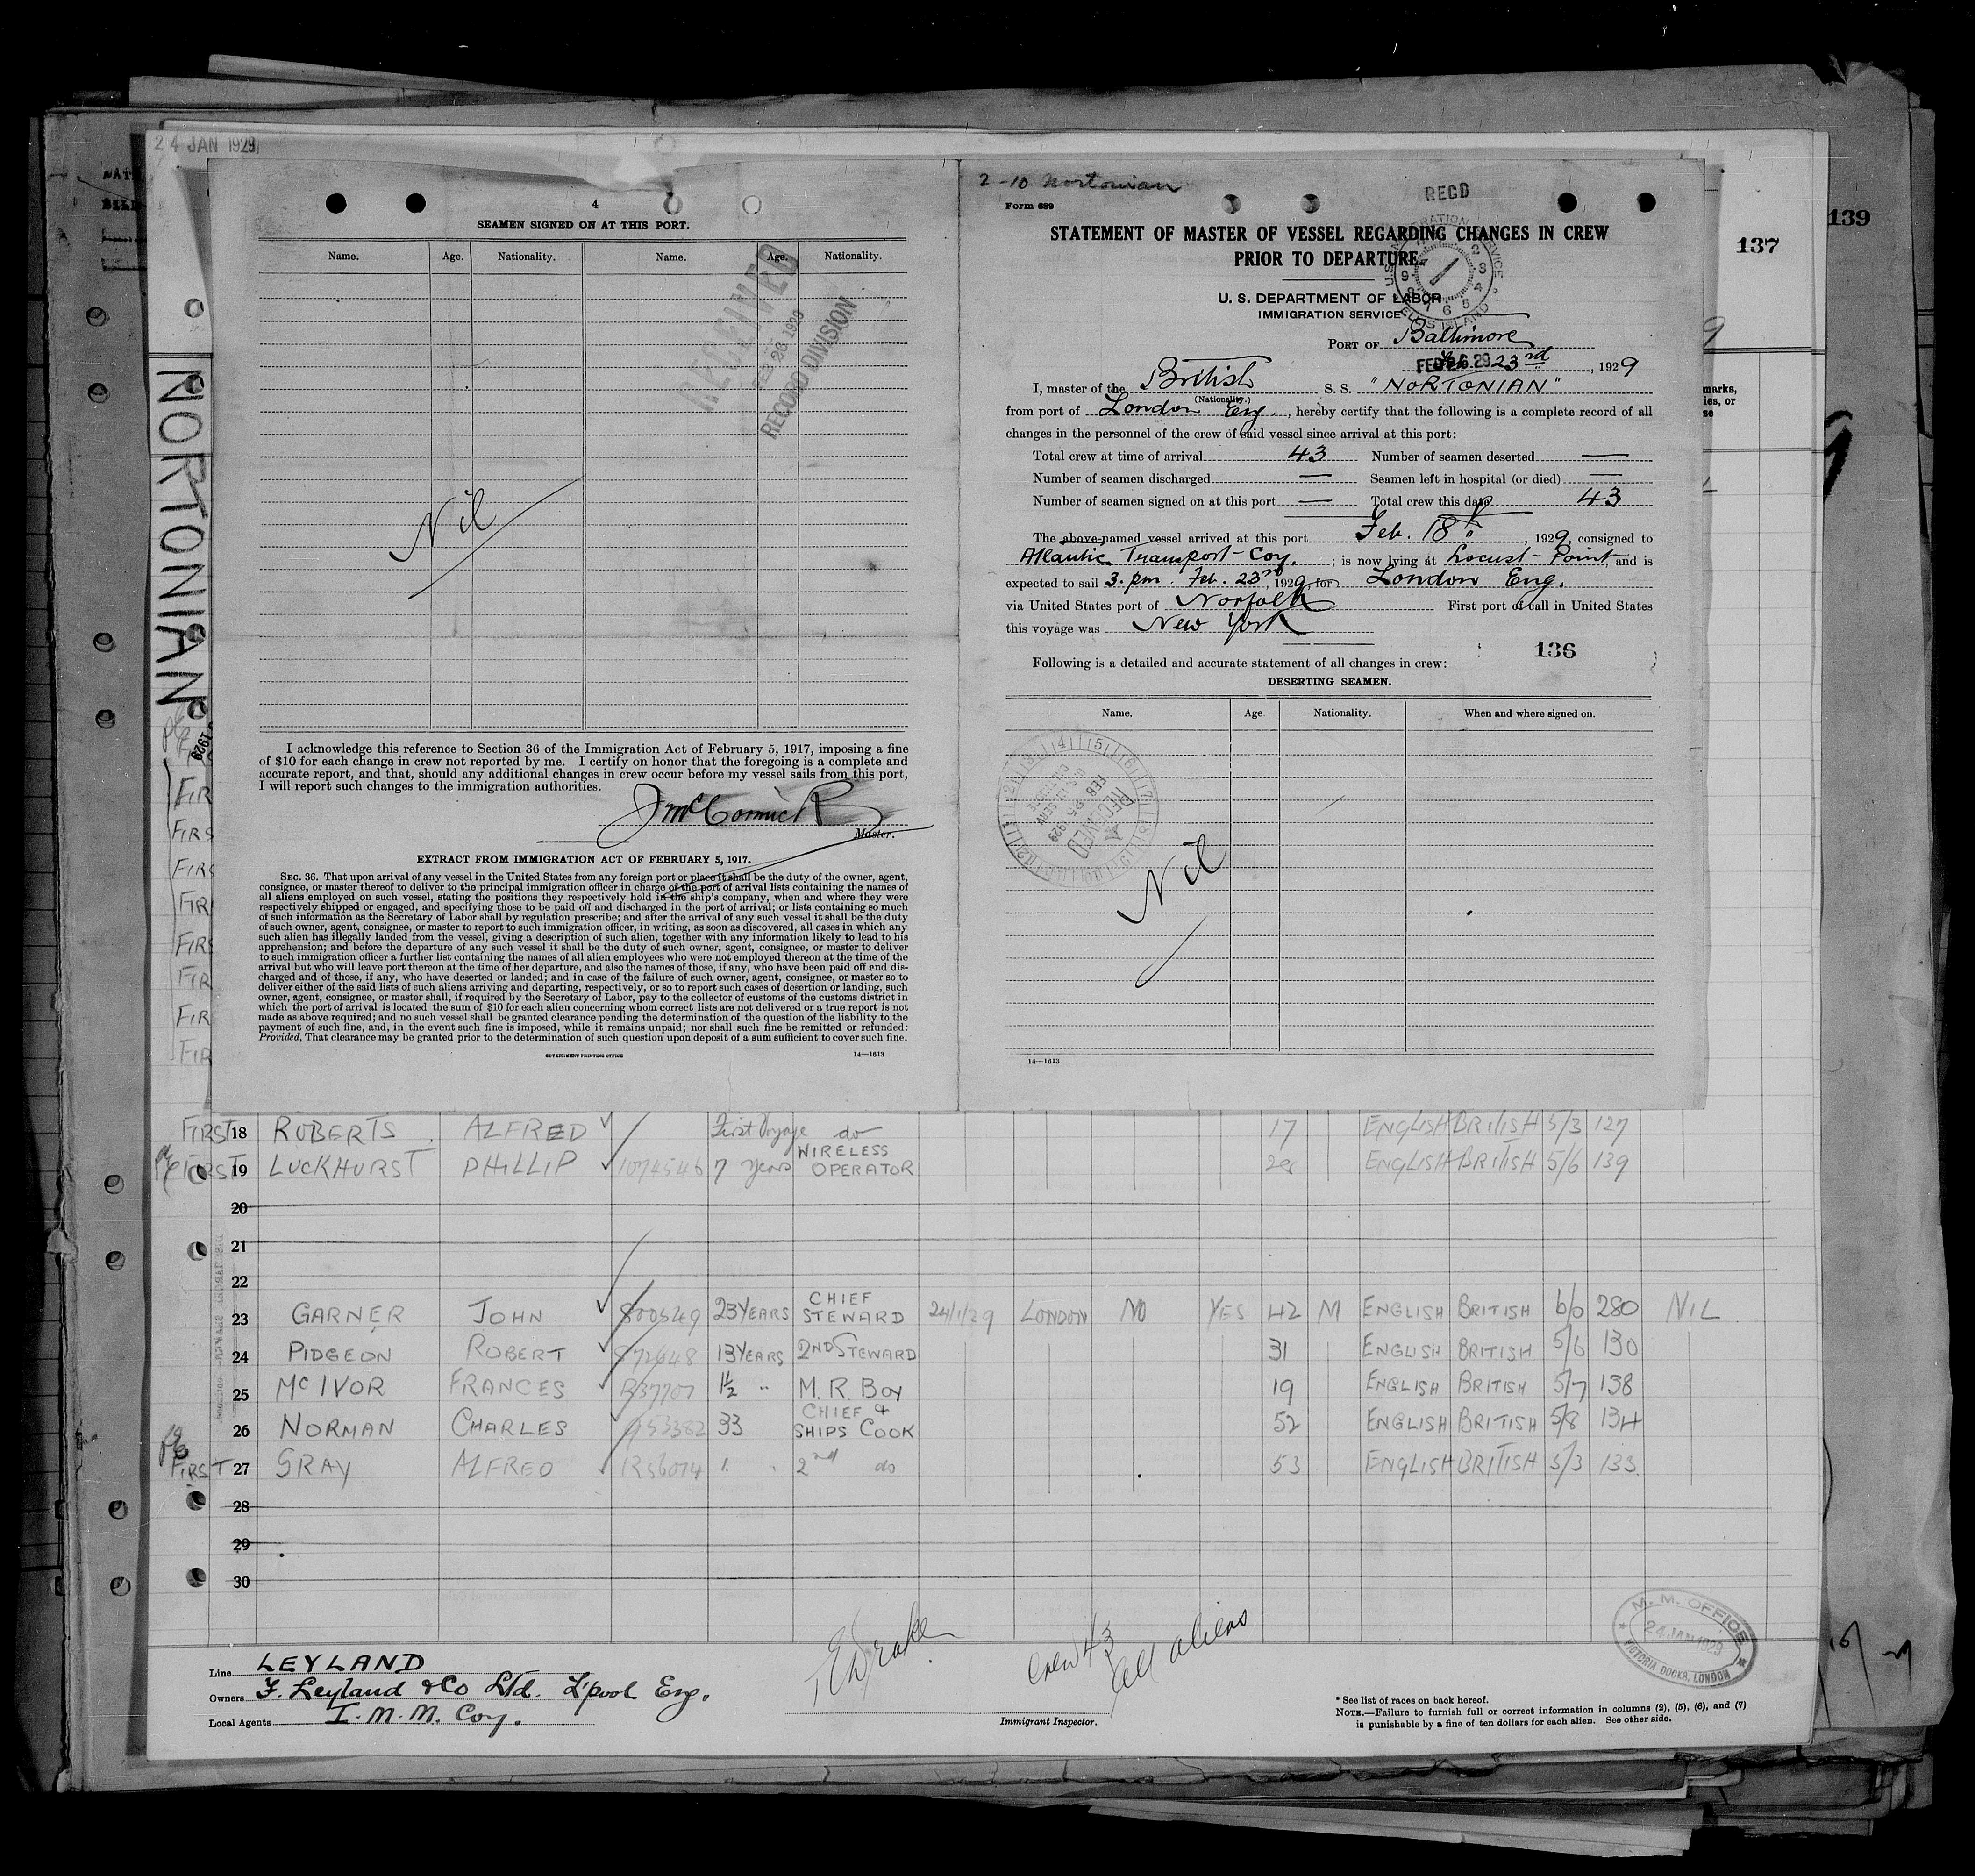 24 JAN 1929
139
137
NORTONIAN
4
SEAMEN SIGNED ON AT THIS PORT.
Name. Age. Nationality. Name. Age. Nationality.
RECEIVED
FEB 26 1929
RECORD DIVISION
Nil
I acknowledge this reference to Section 36 of the Immigration Act of February 5, 1917, imposing a fine
of $10 for each change in crew not reported by me. I certify on honor that the foregoing is a complete and
accurate report, and that, should any additional changes in crew occur before my vessel sails from this port,
I will report such changes to the immigration authorities.
J McCormick
Master.
EXTRACT FROM IMMIGRATION ACT OF FEBRUARY 5, 1917.
SEC. 36. That upon arrival of any vessel in the United States from any foreign port or place it shall be the duty of the owner, agent,
consignee, or master thereof to deliver to the principal immigration officer in charge of the port of arrival lists containing the names of
all aliens employed on such vessel, stating the positions they respectively hold in the ship's company, when and where they were
respectively shipped or engaged, and specifying those to be paid off and discharged in the port of arrival; or lists containing so much
of such information as the Secretary of Labor shall by regulation prescribe; and after the arrival of any such vessel it shall be the duty
of such owner, agent, consignee, or master to report to such immigration officer, in writing, as soon as discovered, all cases in which any
such alien has illegally landed from the vessel, giving a description of such alien, together with any information likely to lead to his
apprehension; and before the departure of any such vessel it shall be the duty of such owner, agent, consignee, or master to deliver
to such immigration officer a further list containing the names of all alien employees who were not employed thereon at the time of the
arrival but who will leave port thereon at the time of her departure, and also the names of those, if any, who have been paid off and dis-
charged and of those, if any, who have deserted or landed; and in case of the failure of such owner, agent, consignee, or master so to
deliver either of the said lists of such aliens arriving and departing, respectively, or so to report such cases of desertion or landing, such
owner, agent, consignee, or master shall, if required by the Secretary of Labor, pay to the collector of customs of the customs district in
which the port of arrival is located the sum of $10 for each alien concerning whom correct lists are not delivered or a true report is not
made as above required; and no such vessel shall be granted clearance pending the determination of the question of the liability to the
payment of such fine, and, in the event such fine is imposed, while it remains unpaid; nor shall such fine be remitted or refunded:
Provided, That clearance may be granted prior to the determination of such question upon deposit of a sum sufficient to cover such fine.
GOVERNMENT PRINTING OFFICE 14—1613
2-10 Nortonian
RECD
Form 689
STATEMENT OF MASTER OF VESSEL REGARDING CHANGES IN CREW
PRIOR TO DEPARTURE.
U. S. DEPARTMENT OF LABOR
IMMIGRATION SERVICE
ELLIS ISLAND
PORT OF Baltimore
23rd, 1929
I, master of the British S. S. "NORTONIAN"
(Nationality.)
from port of London Eng, hereby certify that the following is a complete record of all
changes in the personnel of the crew of said vessel since arrival at this port:
Total crew at time of arrival 43 Number of seamen deserted —
Number of seamen discharged — Seamen left in hospital (or died) —
Number of seamen signed on at this port — Total crew this day 43
The above-named vessel arrived at this port Feb. 18th, 1929, consigned to
Atlantic Transport Coy. ; is now lying at Locust-Point, and is
expected to sail 3. pm. Feb. 23rd 1929 for London Eng.
via United States port of Norfolk First port of call in United States
this voyage was New York
136
Following is a detailed and accurate statement of all changes in crew:
DESERTING SEAMEN.
Name. Age Nationality. When and where signed on.
RECEIVED
FEB 25 1929
Nil
14—1613
FIRST 18 ROBERTS ALFRED First Voyage do 17 ENGLISH BRITISH 5/3 127
FIRST 19 LUCKHURST PHILLIP 1074546 7 years WIRELESS OPERATOR ENGLISH BRITISH 5/6 139
20
21
22
23 GARNER JOHN 800549 23 YEARS CHIEF STEWARD 24/1/29 LONDON NO YES 42 M ENGLISH BRITISH 6/0 280 NIL
24 PIDGEON ROBERT 872648 13 YEARS 2ND STEWARD 31 ENGLISH BRITISH 5/6 130
25 McIVOR FRANCES R37707 1½ " M. R. BOY 19 ENGLISH BRITISH 5/7 138
26 NORMAN CHARLES 953382 33 CHIEF & SHIPS COOK 52 ENGLISH BRITISH 5/8 134
FIRST 27 GRAY ALFRED 2nd do 53 ENGLISH BRITISH 5/3 133
28
29
30
Line LEYLAND
Owners F. Leyland & Co Ltd. L'pool Eng.
Local Agents I. M. M. Coy.
Crew 43
all aliens
Immigrant Inspector.
M. M. OFFICE
24 JAN 1929
VICTORIA DOCKS, LONDON
* See list of races on back hereof.
NOTE.—Failure to furnish full or correct information in columns (2), (5), (6), and (7)
is punishable by a fine of ten dollars for each alien. See other side.